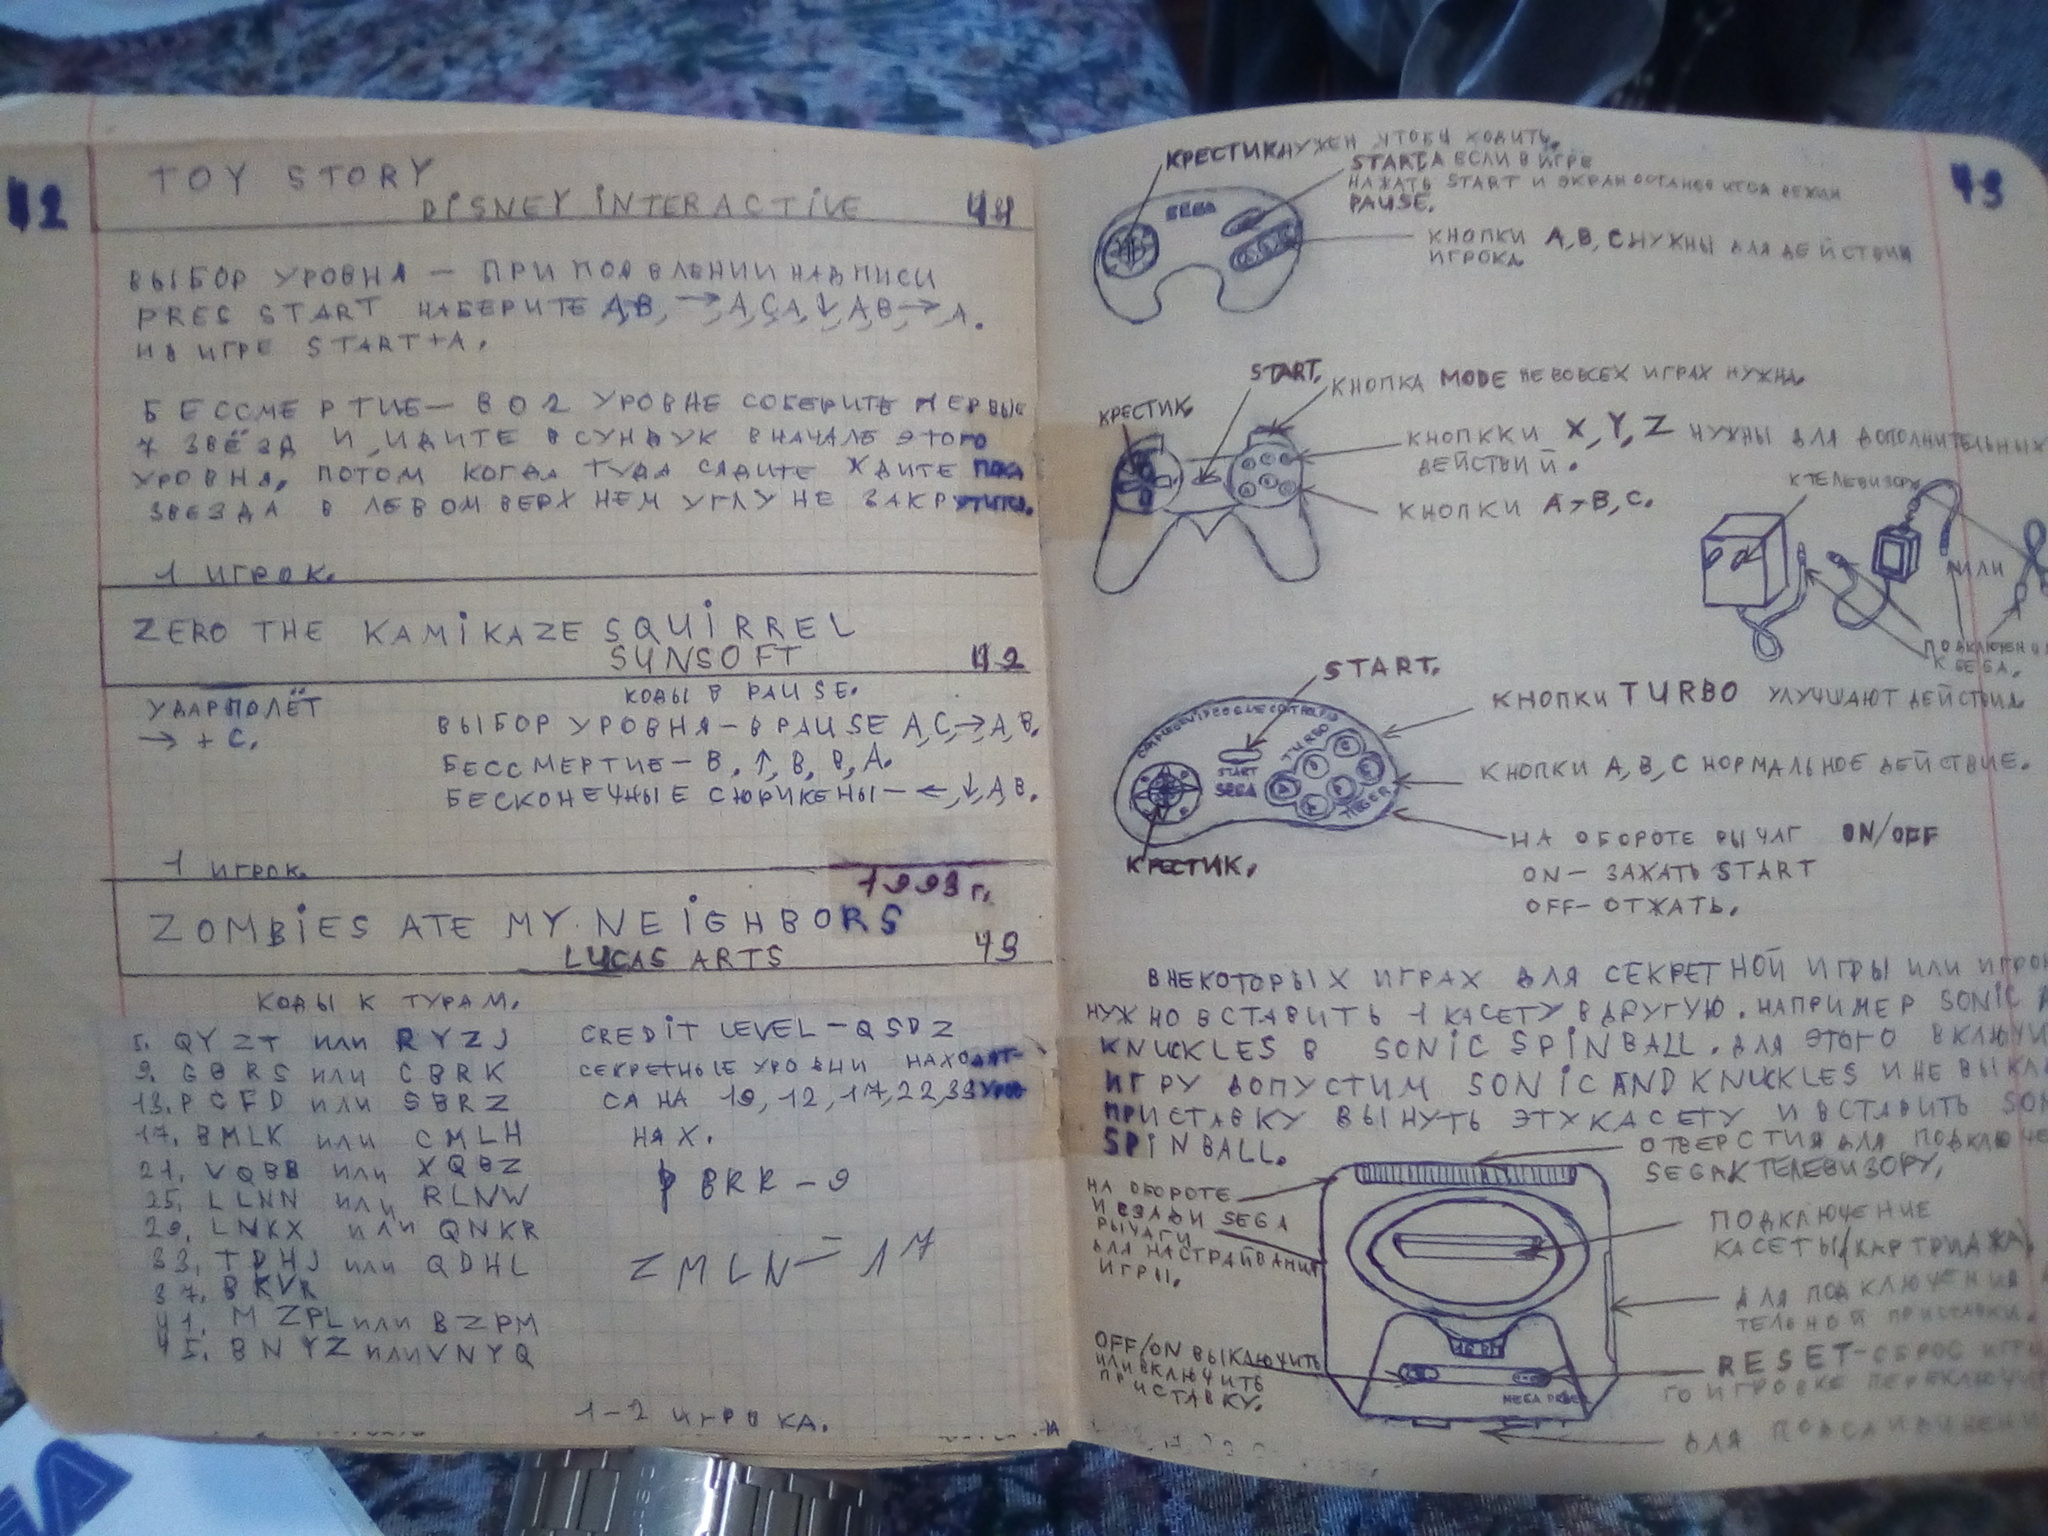 42
TOY STORY
DISNEY INTERACTIVE
ВЫБОР УРОВНЯ — ПРИ ПОЯВЛЕНИИ НАДПИСИ
PRES START НАБЕРИТЕ A,B, →, A, C, A, ↓, A, B, →, A.
И В ИГРЕ START+A.
БЕССМЕРТИЕ — ВО 2 УРОВНЕ СОБЕРИТЕ ПЕРВЫЕ
7 ЗВЁЗД И ИДИТЕ В СУНДУК В НАЧАЛЕ ЭТОГО
УРОВНЯ, ПОТОМ КОГДА ТУДА СЯДИТЕ ЖДИТЕ ПОКА
ЗВЕЗДА В ЛЕВОМ ВЕРХНЕМ УГЛУ НЕ ЗАКРУТИТСЯ.
1 ИГРОК.
ZERO THE KAMIKAZE SQUIRREL
SUNSOFT 42
УДАР ПОЛЁТ
→ + C.
КОДЫ В PAUSE.
ВЫБОР УРОВНЯ — В PAUSE A, C, →, A, B.
БЕССМЕРТИЕ — B, ↑, B, B, A.
БЕСКОНЕЧНЫЕ СЮРИКЕНЫ — ←, ↓, A, B.
1 ИГРОК.
1993 г.
ZOMBIES ATE MY NEIGHBORS
LUCAS ARTS 43
КОДЫ К ТУРАМ.
5. QYZT ИЛИ RYZJ
9. GBRS ИЛИ CBRK
13. PCFD ИЛИ SBRZ
17. BMLK ИЛИ CMLH
21. VQBB ИЛИ XQBZ
25. LLNN ИЛИ RLNW
29. LNKX ИЛИ QNKR
33. TDHJ ИЛИ QDHL
37. BKVR
41. MZPL ИЛИ BZPM
45. BNYZ ИЛИ VNYQ
CREDIT LEVEL — QSDZ
СЕКРЕТНЫЕ УРОВНИ НАХОДЯТ-
СА НА 19, 12, 17, 22, 33 УРОВ
НЯХ.
BRR - 9
ZMLN = 17
1-2 ИГРОКА.
43
КРЕСТИК НУЖЕН ЧТОБЫ ХОДИТЬ.
START А ЕСЛИ В ИГРЕ
НАЖАТЬ START И ЭКРАН ОСТАНОВИТСЯ РЕЖИМ
PAUSE.
SEGA
КНОПКИ A, B, C НУЖНЫ ДЛЯ ДЕЙСТВИЯ
ИГРОКА
START.
КНОПКА MODE НЕ ВО ВСЕХ ИГРАХ НУЖНА.
КРЕСТИК.
КНОПККИ X, Y, Z НУЖНЫ ДЛЯ ДОПОЛНИТЕЛЬНЫХ
ДЕЙСТВИЙ.
К ТЕЛЕВИЗОРУ
КНОПКИ A, B, C.
ИЛИ
К SEGA.
START.
КНОПКИ TURBO УЛУЧШАЮТ ДЕЙСТВИЯ.
TURBO
START
SEGA
TIGER
КНОПКИ A, B, C НОРМАЛЬНОЕ ДЕЙСТВИЕ.
НА ОБОРОТЕ РЫЧАГ ON/OFF
ON — ЗАЖАТЬ START
OFF — ОТЖАТЬ.
КРЕСТИК.
В НЕКОТОРЫХ ИГРАХ ДЛЯ СЕКРЕТНОЙ ИГРЫ ИЛИ
НУЖНО ВСТАВИТЬ 1 КАСЕТУ В ДРУГУЮ. НАПРИМЕР SONIC
KNUCKLES В SONIC SPINBALL. ДЛЯ ЭТОГО
ИГРУ ДОПУСТИМ SONIC AND KNUCKLES И НЕ
ПРИСТАВКУ ВЫНУТЬ ЭТУ КАСЕТУ И ВСТАВИТЬ
SPINBALL.
ОТВЕРСТИЯ ДЛЯ
SEGA К ТЕЛЕВИЗОРУ.
НА ОБОРОТЕ
И СЗАДИ SEGA
РЫЧАГИ
ДЛЯ НАСТРАИВАНИЯ
ИГРЫ.
ПОДКЛЮЧЕНИЕ
КАСЕТЫ (КАРТРИДЖА)
ДЛЯ ПОДКЛЮЧЕНИЯ
ТЕЛЬНОЙ ПРИСТАВКИ.
16 BIT
OFF/ON ВЫКЛЮЧИТЬ
ИЛИ ВКЛЮЧИТЬ
ПРИСТАВКУ.
RESET — СБРОС